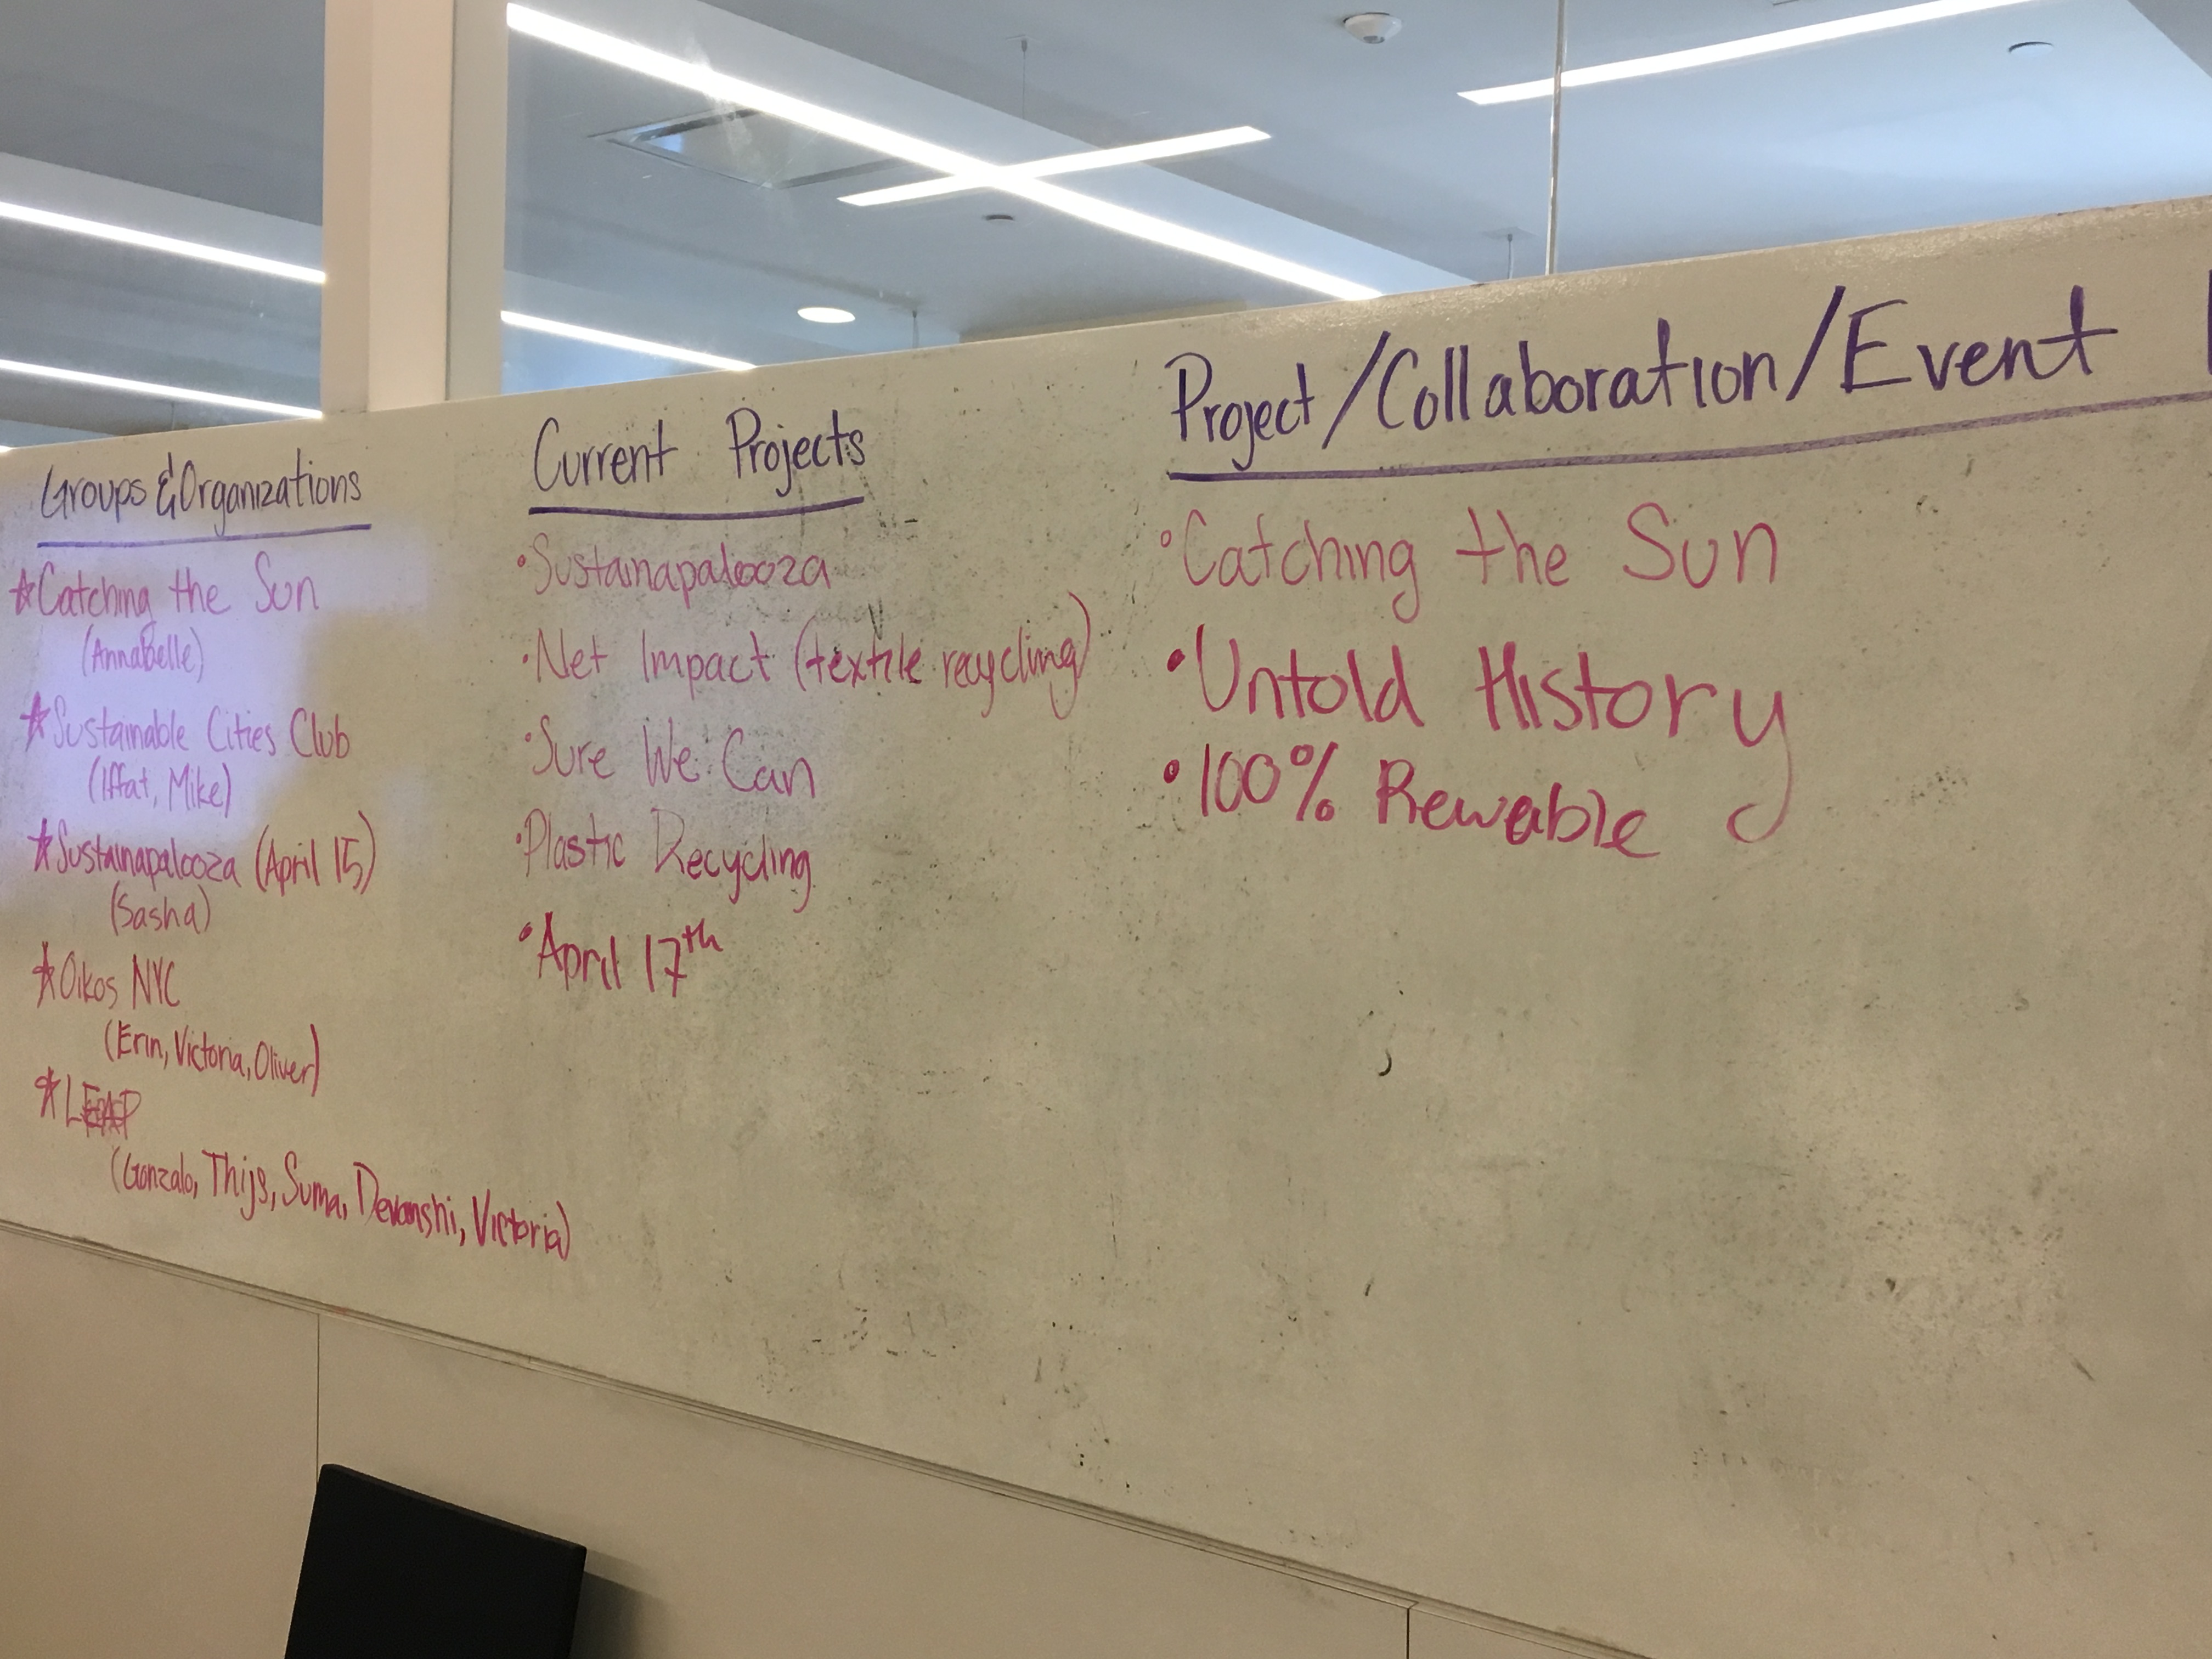 Groups & Organizations
☆Catching the Sun
(AnnaBelle)
☆Sustainable Cities Club
(Iffat, Mike)
☆Sustainapalooza (April 15)
(Sasha)
☆Oikos NYC
(Erin, Victoria, Oliver)
☆LEAP
(Gonzalo, Thijs, Suma, Devanshi, Victoria)
Current Projects
•Sustainapalooza
•Net Impact (textile recycling)
•Sure We Can
•Plastic Recycling
•April 17th
Project/Collaboration/Event
•Catching the Sun
•Untold History
•100% Rewable